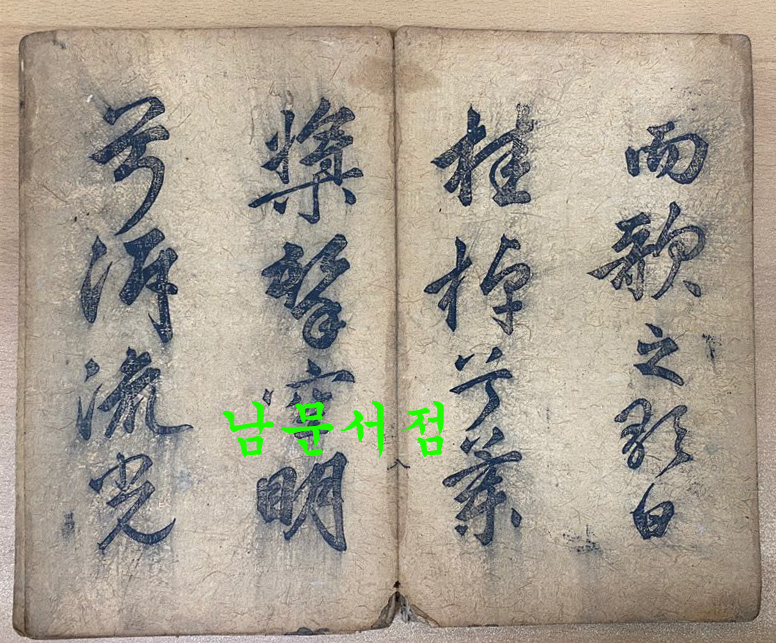 而歌之歌曰
桂棹兮蘭
槳擊空明
兮泝流光
八
남문서점